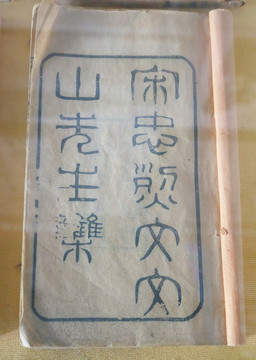 宋忠烈文文
山先生集